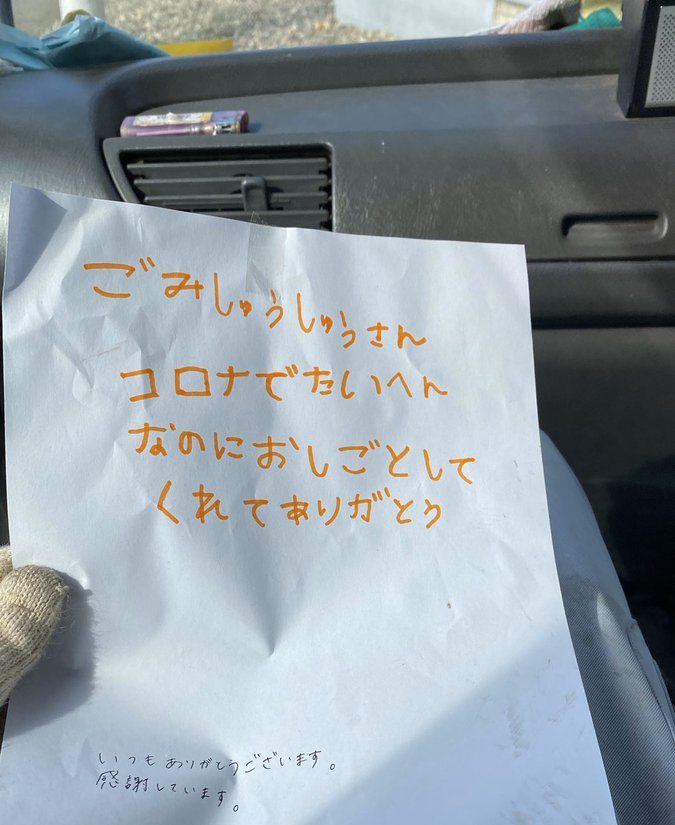 ごみしゅうしゅうさん
コロナでたいへん
なのにおしごとして
くれてありがとう
いつもありがとうございます。
感謝しています。